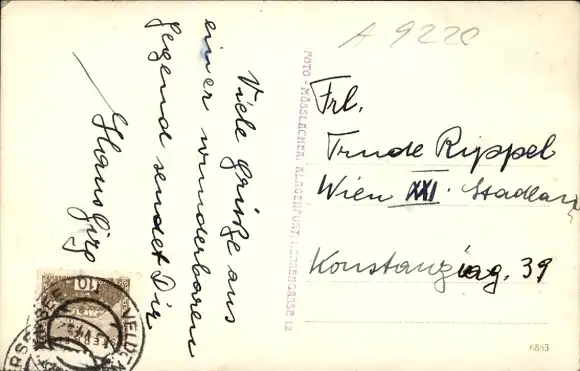 A 9220
Viele Grüße aus
einer wunderbaren
Gegend sendet Dir
Hans Girg
FOTO-MÖSSLACHER, KLAGENFURT, HERRENGASSE 12
Frl.
Trude Rippel
Wien XXI. Stadlau
Konstanziag. 39
110
VELDEN
6863